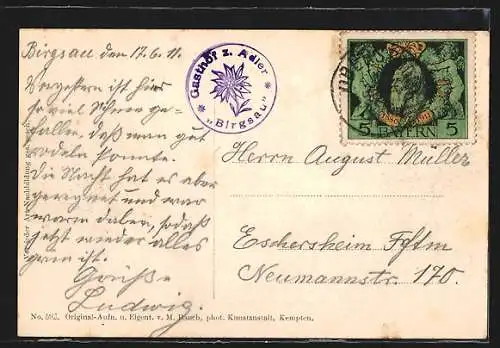 Birgsau den 17.6.11.
Vorgestern ist hier
so viel Schnee ge-
fallen, daß man gut
rodeln konnte.
Die Nacht hat es aber
geregnet und war
warm dabei, sodaß
jetzt wieder alles
grün ist.
Grüße
Ludwig.
Gasthof z. Adler
"Birgsau"
5 BAYERN 5
Herrn August Müller
Eschersheim Ffm
Neumannstr. 170.
No. Original-Aufn. u. Eigent. v. M. Rauch, phot. Kunstanstalt, Kempten.